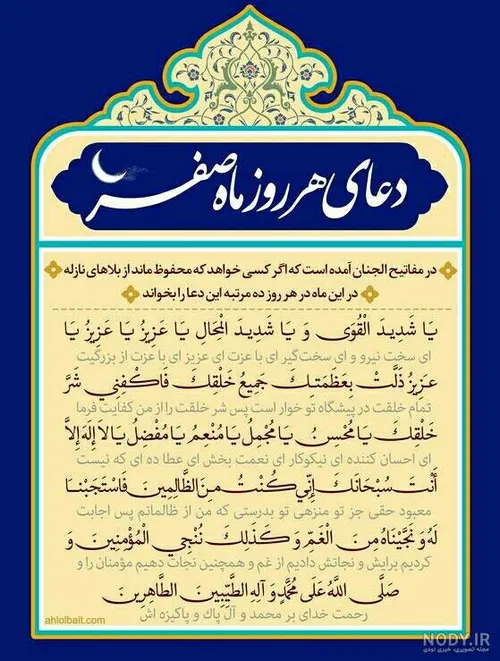 دعای هر روز ماه صفر
در مفاتیح الجنان آمده است که اگر کسی خواهد که محفوظ ماند از بلاهای نازله
در این ماه در هر روز ده مرتبه این دعا را بخواند
يَا شَدِيدَ الْقُوَى وَ يَا شَدِيدَ الْمِحَالِ يَا عَزِيزُ يَا عَزِيزُ يَا
ای سخت نیرو و ای سخت‌گیر ای با عزت ای عزیز ای با عزت از بزرگیت
عَزِيزُ ذَلَّتْ بِعَظَمَتِكَ جَمِيعُ خَلْقِكَ فَاكْفِنِي شَرَّ
تمام خلقت در پیشگاه تو خوار است پس شر خلقت را از من کفایت فرما
خَلْقِكَ يَا مُحْسِنُ يَا مُجْمِلُ يَا مُنْعِمُ يَا مُفْضِلُ يَا لاَ إِلَهَ إِلاَّ
ای احسان کننده ای نیکوکار ای نعمت بخش ای عطا ده ای که نیست
أَنْتَ سُبْحَانَكَ إِنِّي كُنْتُ مِنَ الظَّالِمِينَ فَاسْتَجَبْنَا
معبود حقی جز تو منزهی تو بدرستی که من از ظالمانم پس اجابت
لَهُ وَ نَجَّيْنَاهُ مِنَ الْغَمِّ وَ كَذَلِكَ نُنْجِي الْمُؤْمِنِينَ وَ
کردیم برایش و نجاتش دادیم از غم و همچنین نجات دهیم مؤمنان را و
صَلَّى اللَّهُ عَلَى مُحَمَّدٍ وَ آلِهِ الطَّيِّبِينَ الطَّاهِرِينَ
رحمت خدای بر محمد و آل پاك و پاکیزه اش
ahlolbait.com
NODY.IR
مجله تصویری، خبری نودی